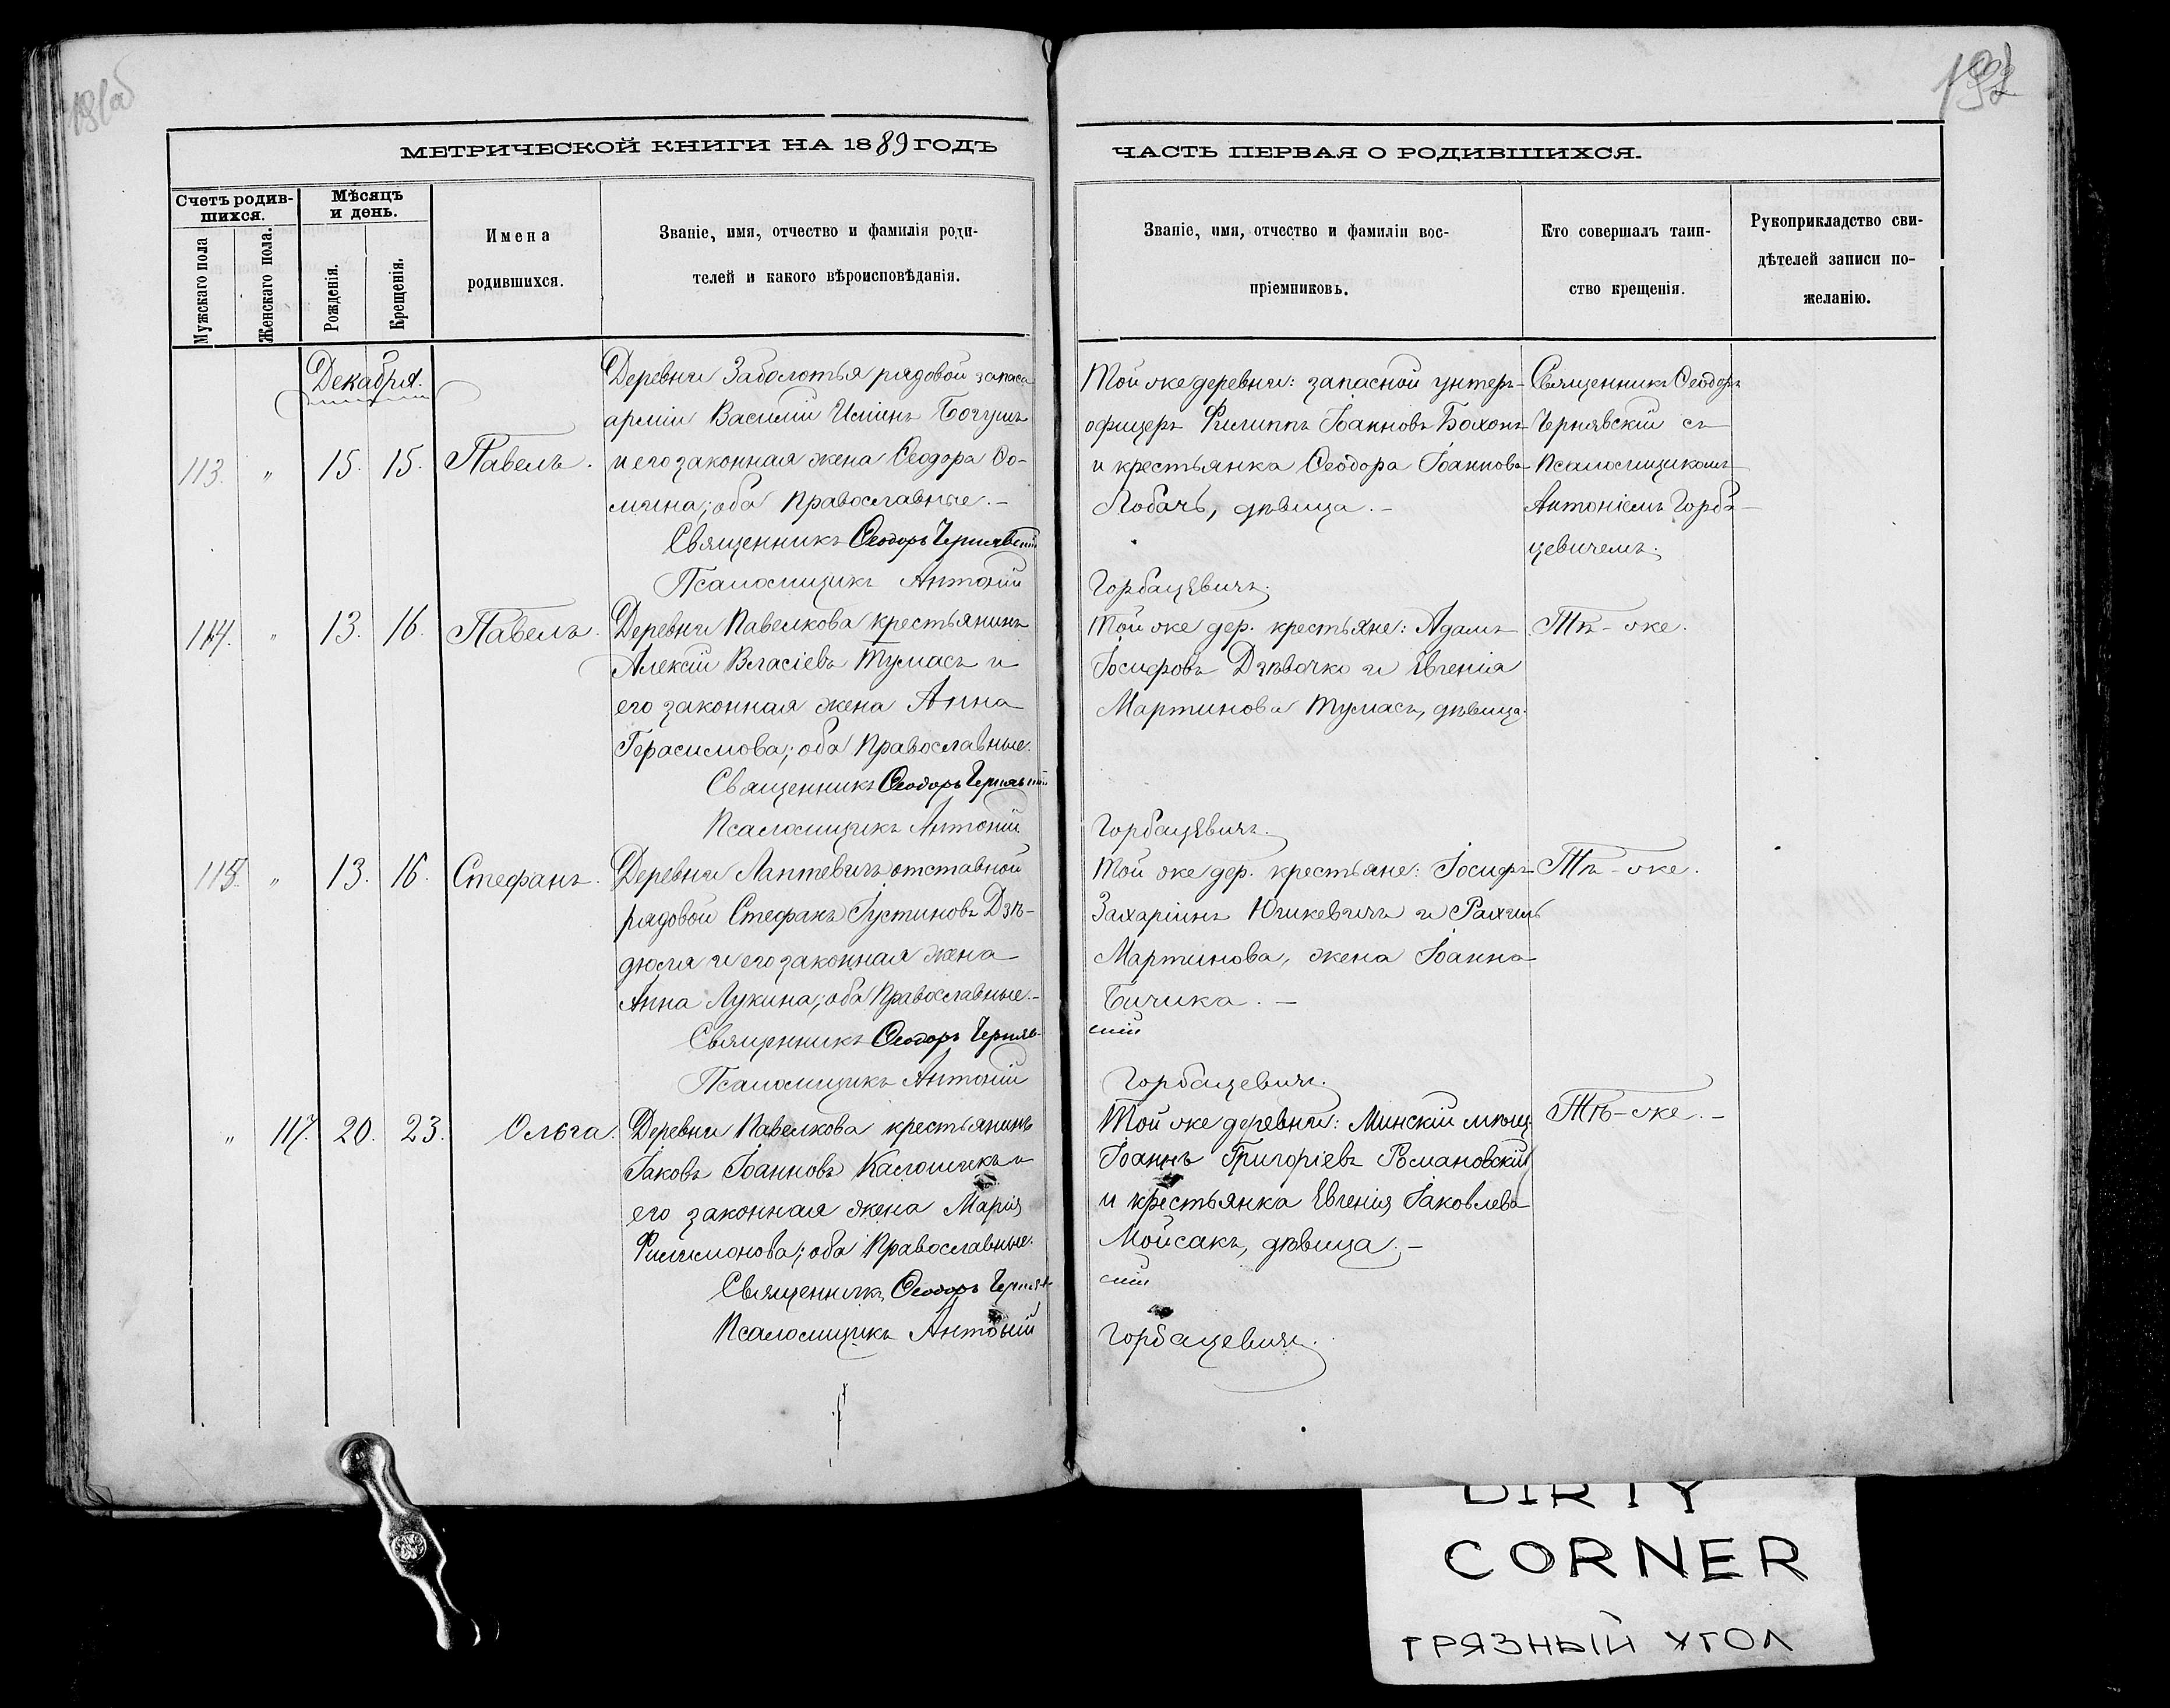 191об
192
МЕТРИЧЕСКОЙ КНИГИ НА 1889 ГОДЪ
ЧАСТЬ ПЕРВАЯ О РОДИВШИХСЯ.
Счетъ родив-
шихся.
Мужскаго пола
Женскаго пола.
Мѣсяцъ
и день.
Рожденія.
Крещенія.
Имена
родившихся.
Званіе, имя, отчество и фамилія роди-
телей и какого вѣроисповѣданія.
Званіе, имя, отчество и фамиліи вос-
пріемниковъ.
Кто совершалъ таин-
ство крещенія.
Рукоприкладство сви-
дѣтелей записи по-
желанію.
Декабря.
113. " 15. 15. Павелъ.
Деревни Заболотья рядовой запаса
арміи Василій Богушъ
и его законная жена Ѳеодора Ѳо-
мина; оба Православные. –
Священникъ Ѳеодоръ Чернявскій
Псаломщикъ Антоній
Той же деревни: запасной унтеръ-
офицеръ Филиппъ Іоанновъ Бохонъ
и крестьянка Ѳеодора Іоаннова
Лобачъ, дѣвица. –
Горбацевичъ.
Священникъ Ѳеодоръ
Чернявскій съ
Псаломщикомъ
Антоніемъ Горба-
цевичемъ.
114. " 13. 16. Павелъ.
Деревни Павелкова крестьянинъ
Алексій Власіевъ Тумасъ и
его законная жена Анна
Герасимова; оба Православные.
Священникъ Ѳеодоръ Чернявскій
Псаломщикъ Антоній
Той же дер. крестьяне: Адамъ
Іосифовъ Дзѣвочко и Евгенія
Мартинова Тумасъ, дѣвица.
Горбацевичъ.
Тѣ-же.
115. " 13. 16. Стефанъ.
Деревни Лаптевичъ отставной
рядовой Стефанъ Іустиновъ Дзѣ-
дюля и его законная жена
Анна Лукина; оба Православные. –
Священникъ Ѳеодоръ Черняв-
Псаломщикъ Антоній
Той же дер. крестьяне: Іосифъ
Захаріинъ Юшкевичъ и Рахиль
Мартинова, жена Іоанна
Бичика. –
скій
Горбацевичъ.
Тѣ-же.
" 117. 20. 23. Ольга.
Деревни Павелкова крестьянинъ
Іаковъ Іоанновъ и
его законная жена Марія
Филимонова; оба Православные.
Священникъ Ѳеодоръ Черняв-
Псаломщикъ Антоній
Той же деревни: Минскій мѣщ.
Іоаннъ Григоріевъ Романовскій
и крестьянка Евгенія Іаковлева
Мойсакъ, дѣвица. –
скій
Горбацевичъ.
Тѣ-же. –
DIRTY
CORNER
ГРЯЗНЫЙ УГОЛ